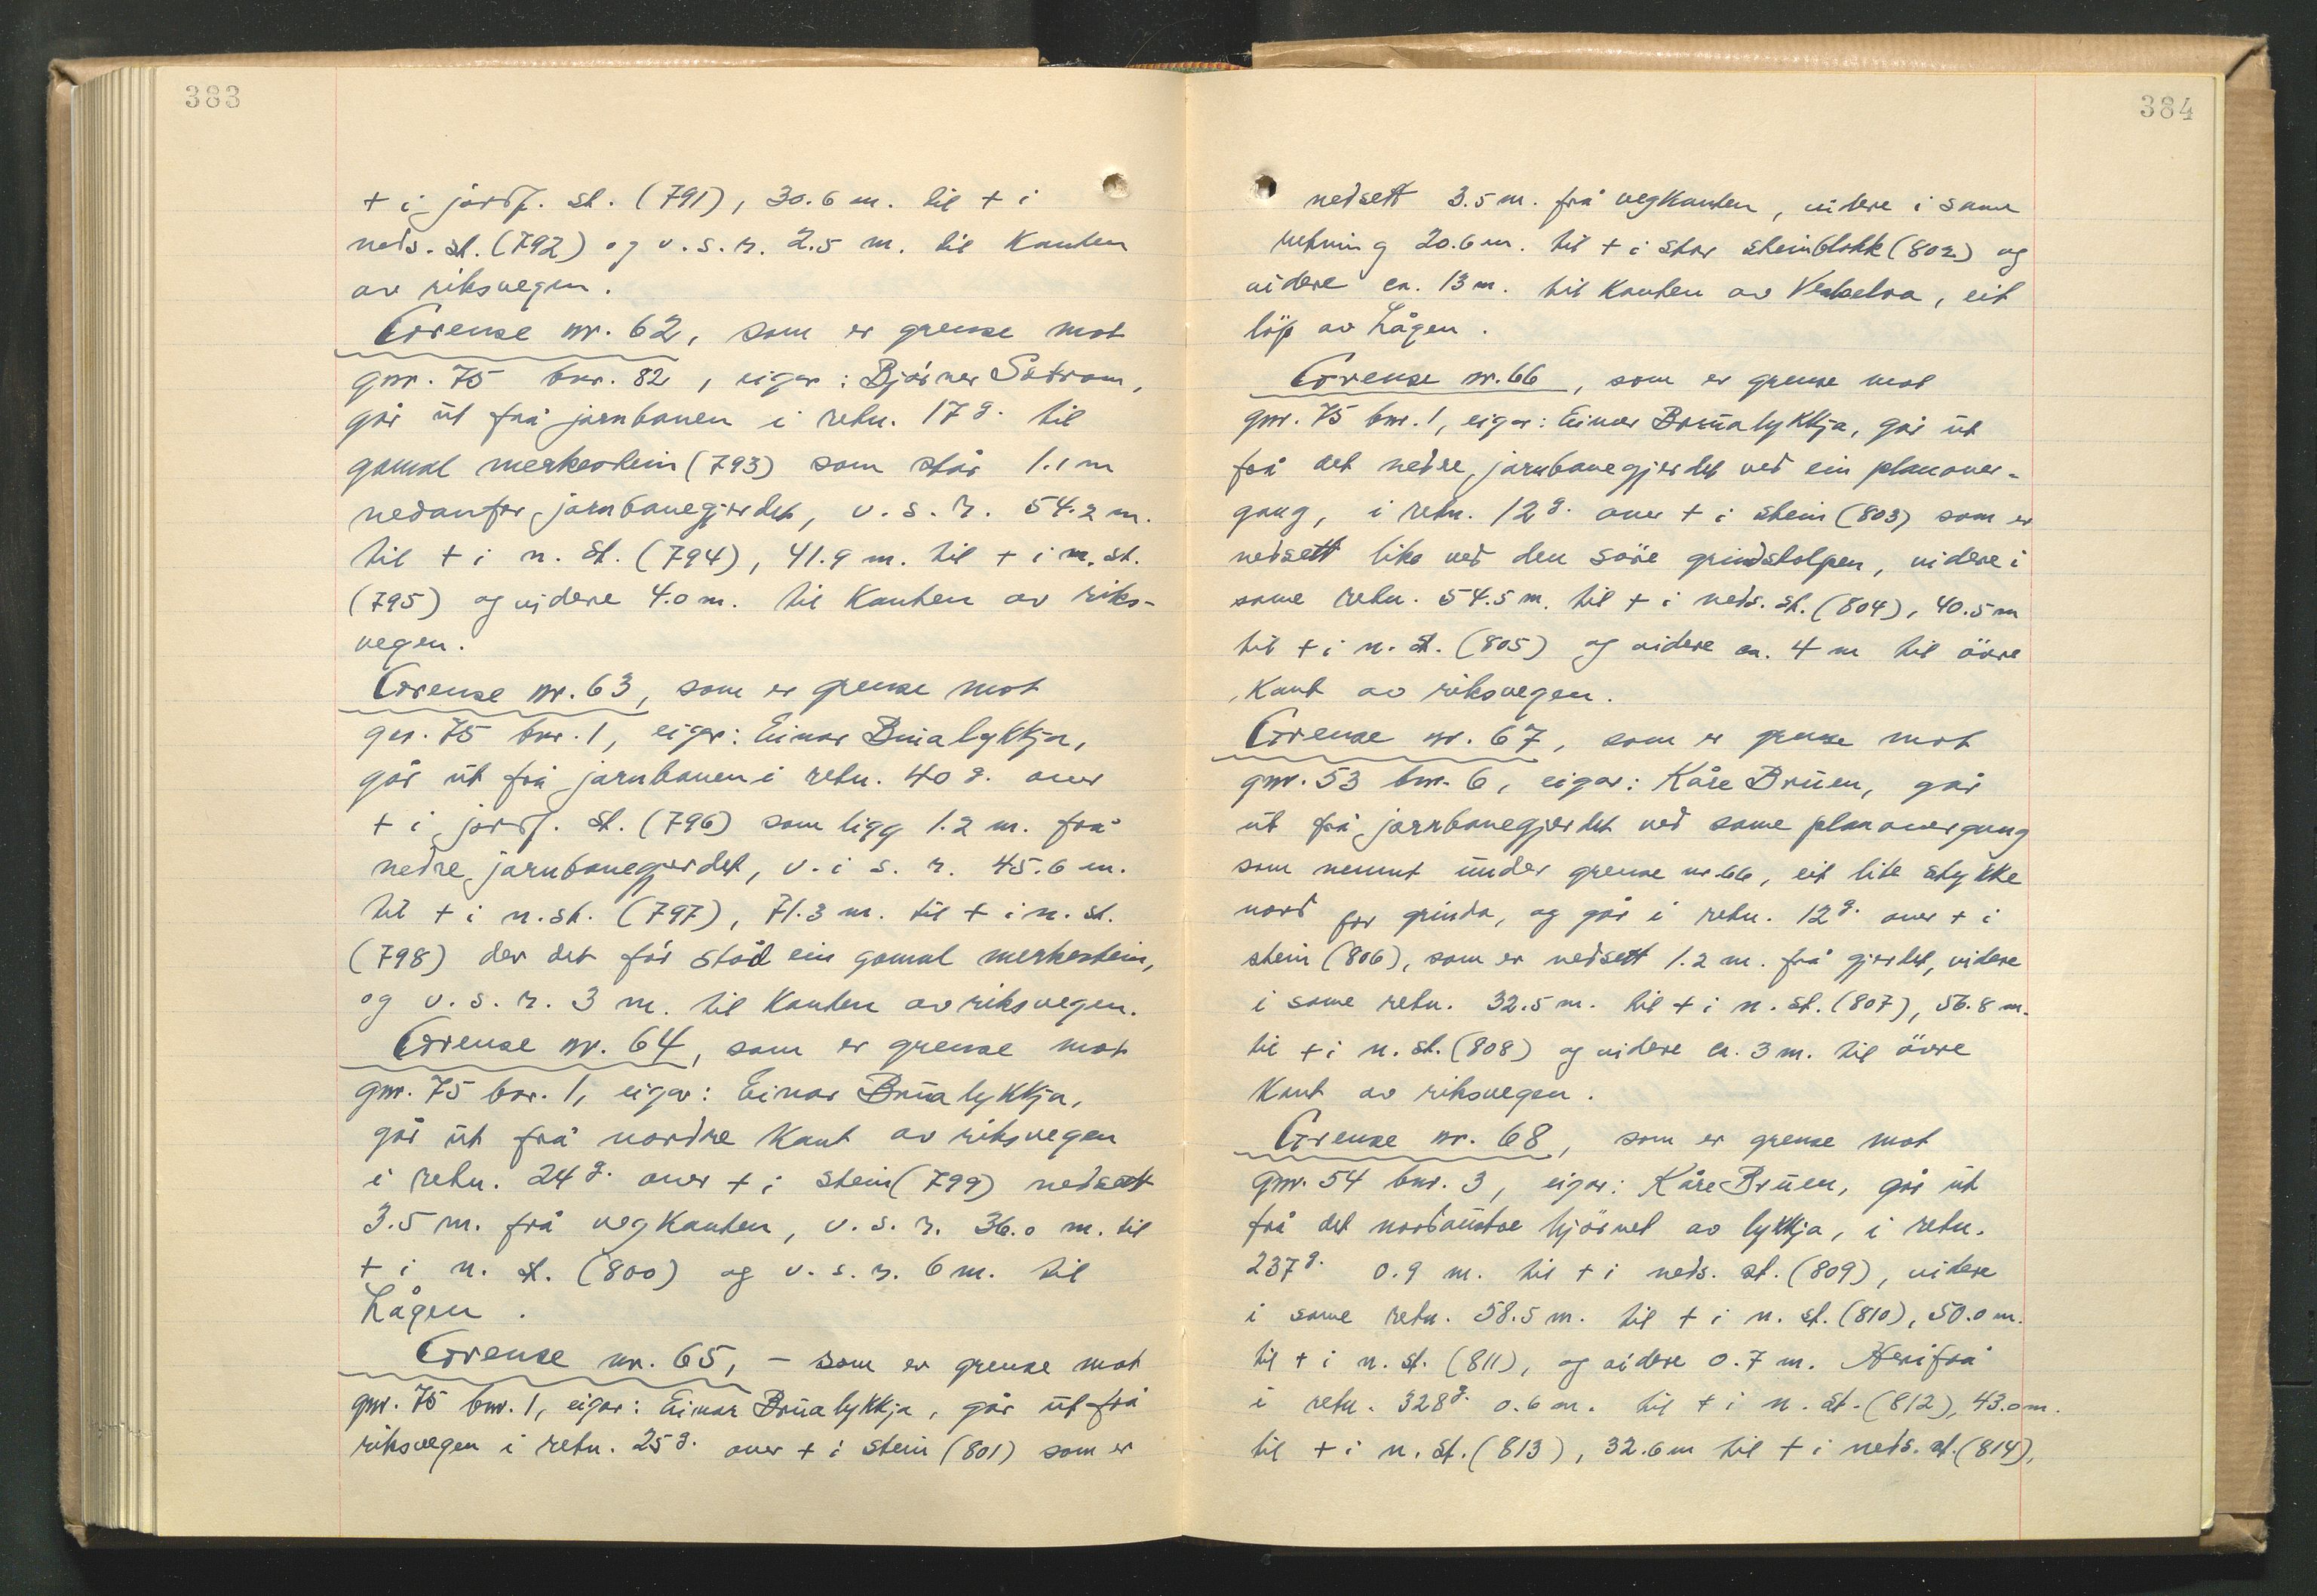 383
+ i jordf. st. (791), 30.6 m. til + i
neds. st. (792) og v. s. r. 2.5 m. til kanten
av riksvegen.
Grense nr. 62, som er grense mot
gnr. 75 bnr. 82, eigar: Bjørner Sotrom,
går ut frå jarnbanen i retn. 17 g. til
gamal merkestein (793) som står 1.1 m
nedanfor jarnbanegjerdet, v. s. r. 54.2 m.
til + i n. st. (794), 41.9 m. til + i n. st.
(795) og videre 4.0 m. til kanten av riks-
vegen.
Grense nr. 63, som er grense mot
gnr. 75 bnr. 1, eigar: Einar Brualykkja,
går ut frå jarnbanen i retn. 40 g. over
+ i jordf. st. (796) som ligg 1.2 m. frå
nedre jarnbanegjerdet, v. i s. r. 45.6 m.
til + i n. st. (797), 71.3 m. til + i n. st.
(798) der det før stod ein gamal merkestein,
og v. s. r. 3 m. til kanten av riksvegen.
Grense nr. 64, som er grense mot
gnr. 75 bnr. 1, eigar: Einar Brualykkja,
går ut frå nordre kant av riksvegen
i retn. 24 g. over + i stein (799) nedsett
3.5 m. frå vegkanten, v. s. r. 36.0 m. til
+ i n. st. (800) og v. s. r. 6 m. til
Lågen.
Grense nr. 65, - som er grense mot
gnr. 75 bnr. 1, eigar: Einar Brualykkja, går ut frå
riksvegen i retn. 25 g. over + i stein (801) som er
384
nedsett 3.5 m. frå vegkanten, videre i same
retning 20.6 m. til + i stor steinblokk (802) og
videre ca. 13 m. til kanten av Vesleelva, eit
løp av Lågen.
Grense nr. 66, som er grense mot
gnr. 75 bnr. 1, eigar: Einar Brualykkja, går ut
frå det nedre jarnbanegjerdet ved ein planover-
gang, i retn. 12 g. over + i stein (803) som er
nedsett like ved den søre grindstolpen, videre i
same retn. 54.5 m. til + i neds. st. (804), 40.5 m
til + i n. st. (805) og videre ca. 4 m til øvre
kant av riksvegen.
Grense nr. 67, som er grense mot
gnr. 53 bnr. 6, eigar: Kåre Bruen, går
ut frå jarnbanegjerdet ved same planovergang
som nemnt under grense nr. 66, eit lite stykke
nord for grinda, og går i retn. 12 g. over + i
stein (806), som er nedsett 1.2 m. frå gjerdet, videre
i same retn. 32.5 m. til + i n. st. (807), 56.8 m.
til + i n. st. (808) og videre ca. 3 m. til øvre
kant av riksvegen.
Grense nr. 68, som er grense mot
gnr. 54 bnr. 3, eigar: Kåre Bruen, går ut
frå det nordaustre hjørnet av lykkja, i retn.
237 g. 0.9 m. til + i neds. st. (809), videre
i same retn. 58.5 m. til + i n. st. (810), 50.0 m.
til + i n. st. (811), og videre 0.7 m. Herifrå
i retn. 328 g. 0.6 m. til + i n. st. (812), 43.0 m.
til + i n. st. (813), 32.6 m til + i neds. st. (814),